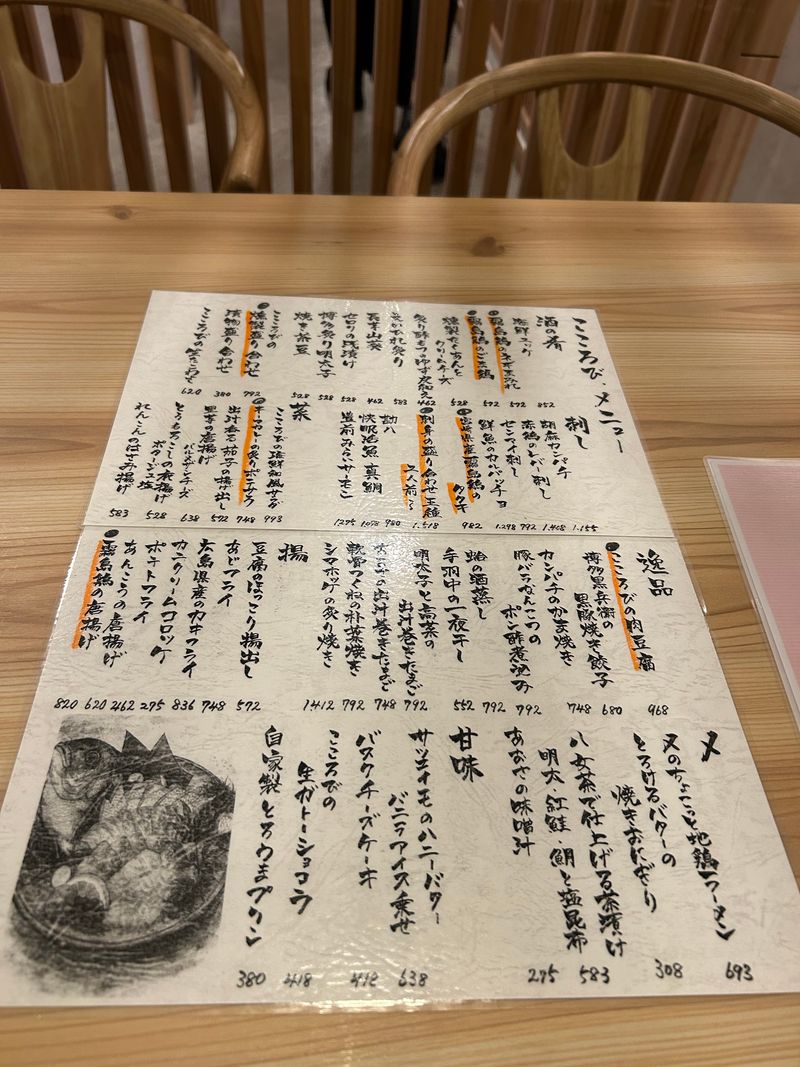 こころび・メニュー
酒の肴
海鮮ユッケ 852
霧島鶏のネギまみれ 572
霧島鶏のごま鶏 572
燻製たくあんと
クリームチーズ 528
炙り酢もつのゆず皮和え 462
炙りえいひれ 583
長芋山葵 462
セロリの浅漬け 528
博多炙り明太子 528
焼き茶豆 528
こころびの
燻製盛り合わせ 792
漬物盛り合わせ 380
620
刺し
胡麻カンパチ 1.155
赤鶏のレバー刺し 1.408
センマイ刺し 792
鮮魚のカルパッチョ 1.298
宮崎県産霧島鶏の
タタキ 982
刺身の盛り合わせ五種
二人前〜 1.518
勘八 980
快眠活魚 真鯛 1078
豊前みらいサーモン 1275
菜
こころびの海鮮和風サラダ 993
オーマカトの炙りポテサラ 748
出汁香る茄子の揚げ出し 572
里芋の唐揚げ
パルメザンチーズ 638
とうもろこしの素揚げ
ポタージュ塩 528
れんこんのはさみ揚げ 583
逸品
こころびの肉豆腐 968
博多黒兵衛の
黒豚焼き餃子 680
カンパチのかま焼き 748
豚バラなんこつの
ポン酢煮込み 792
蛤の酒蒸し 792
手羽中の一夜干し 552
明太子と高菜の
出汁巻きたまご 792
あおさの出汁巻きたまご 748
軟骨つくねの朴葉焼き 792
シマホッケの炙り焼き 1.412
揚
豆腐のほっこり揚出し 572
あじフライ 748
広島県産のカキフライ 836
カニクリームコロッケ 275
ポテトフライ 462
あんこうの唐揚げ 620
霧島鶏の唐揚げ 820
〆
〆のちょこっと地鶏ラーメン 693
とろけるバターの
焼きおにぎり 308
八女茶で仕上げる茶漬け
明太・紅鮭 鯛と塩昆布 583
あおさの味噌汁 275
甘味
サツマイモのハニーバター
バニラアイス乗せ 638
バスクチーズケーキ 418
こころびの
生ガトーショコラ 418
自家製とろうまプリン 380